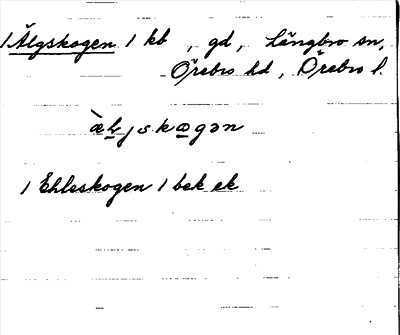 /Älgskogen / kb , gd, Längbro sn,
Örebro hd, Örebro l.
æ̀l̠jskægən
/ Ehlsskogen / bek ek